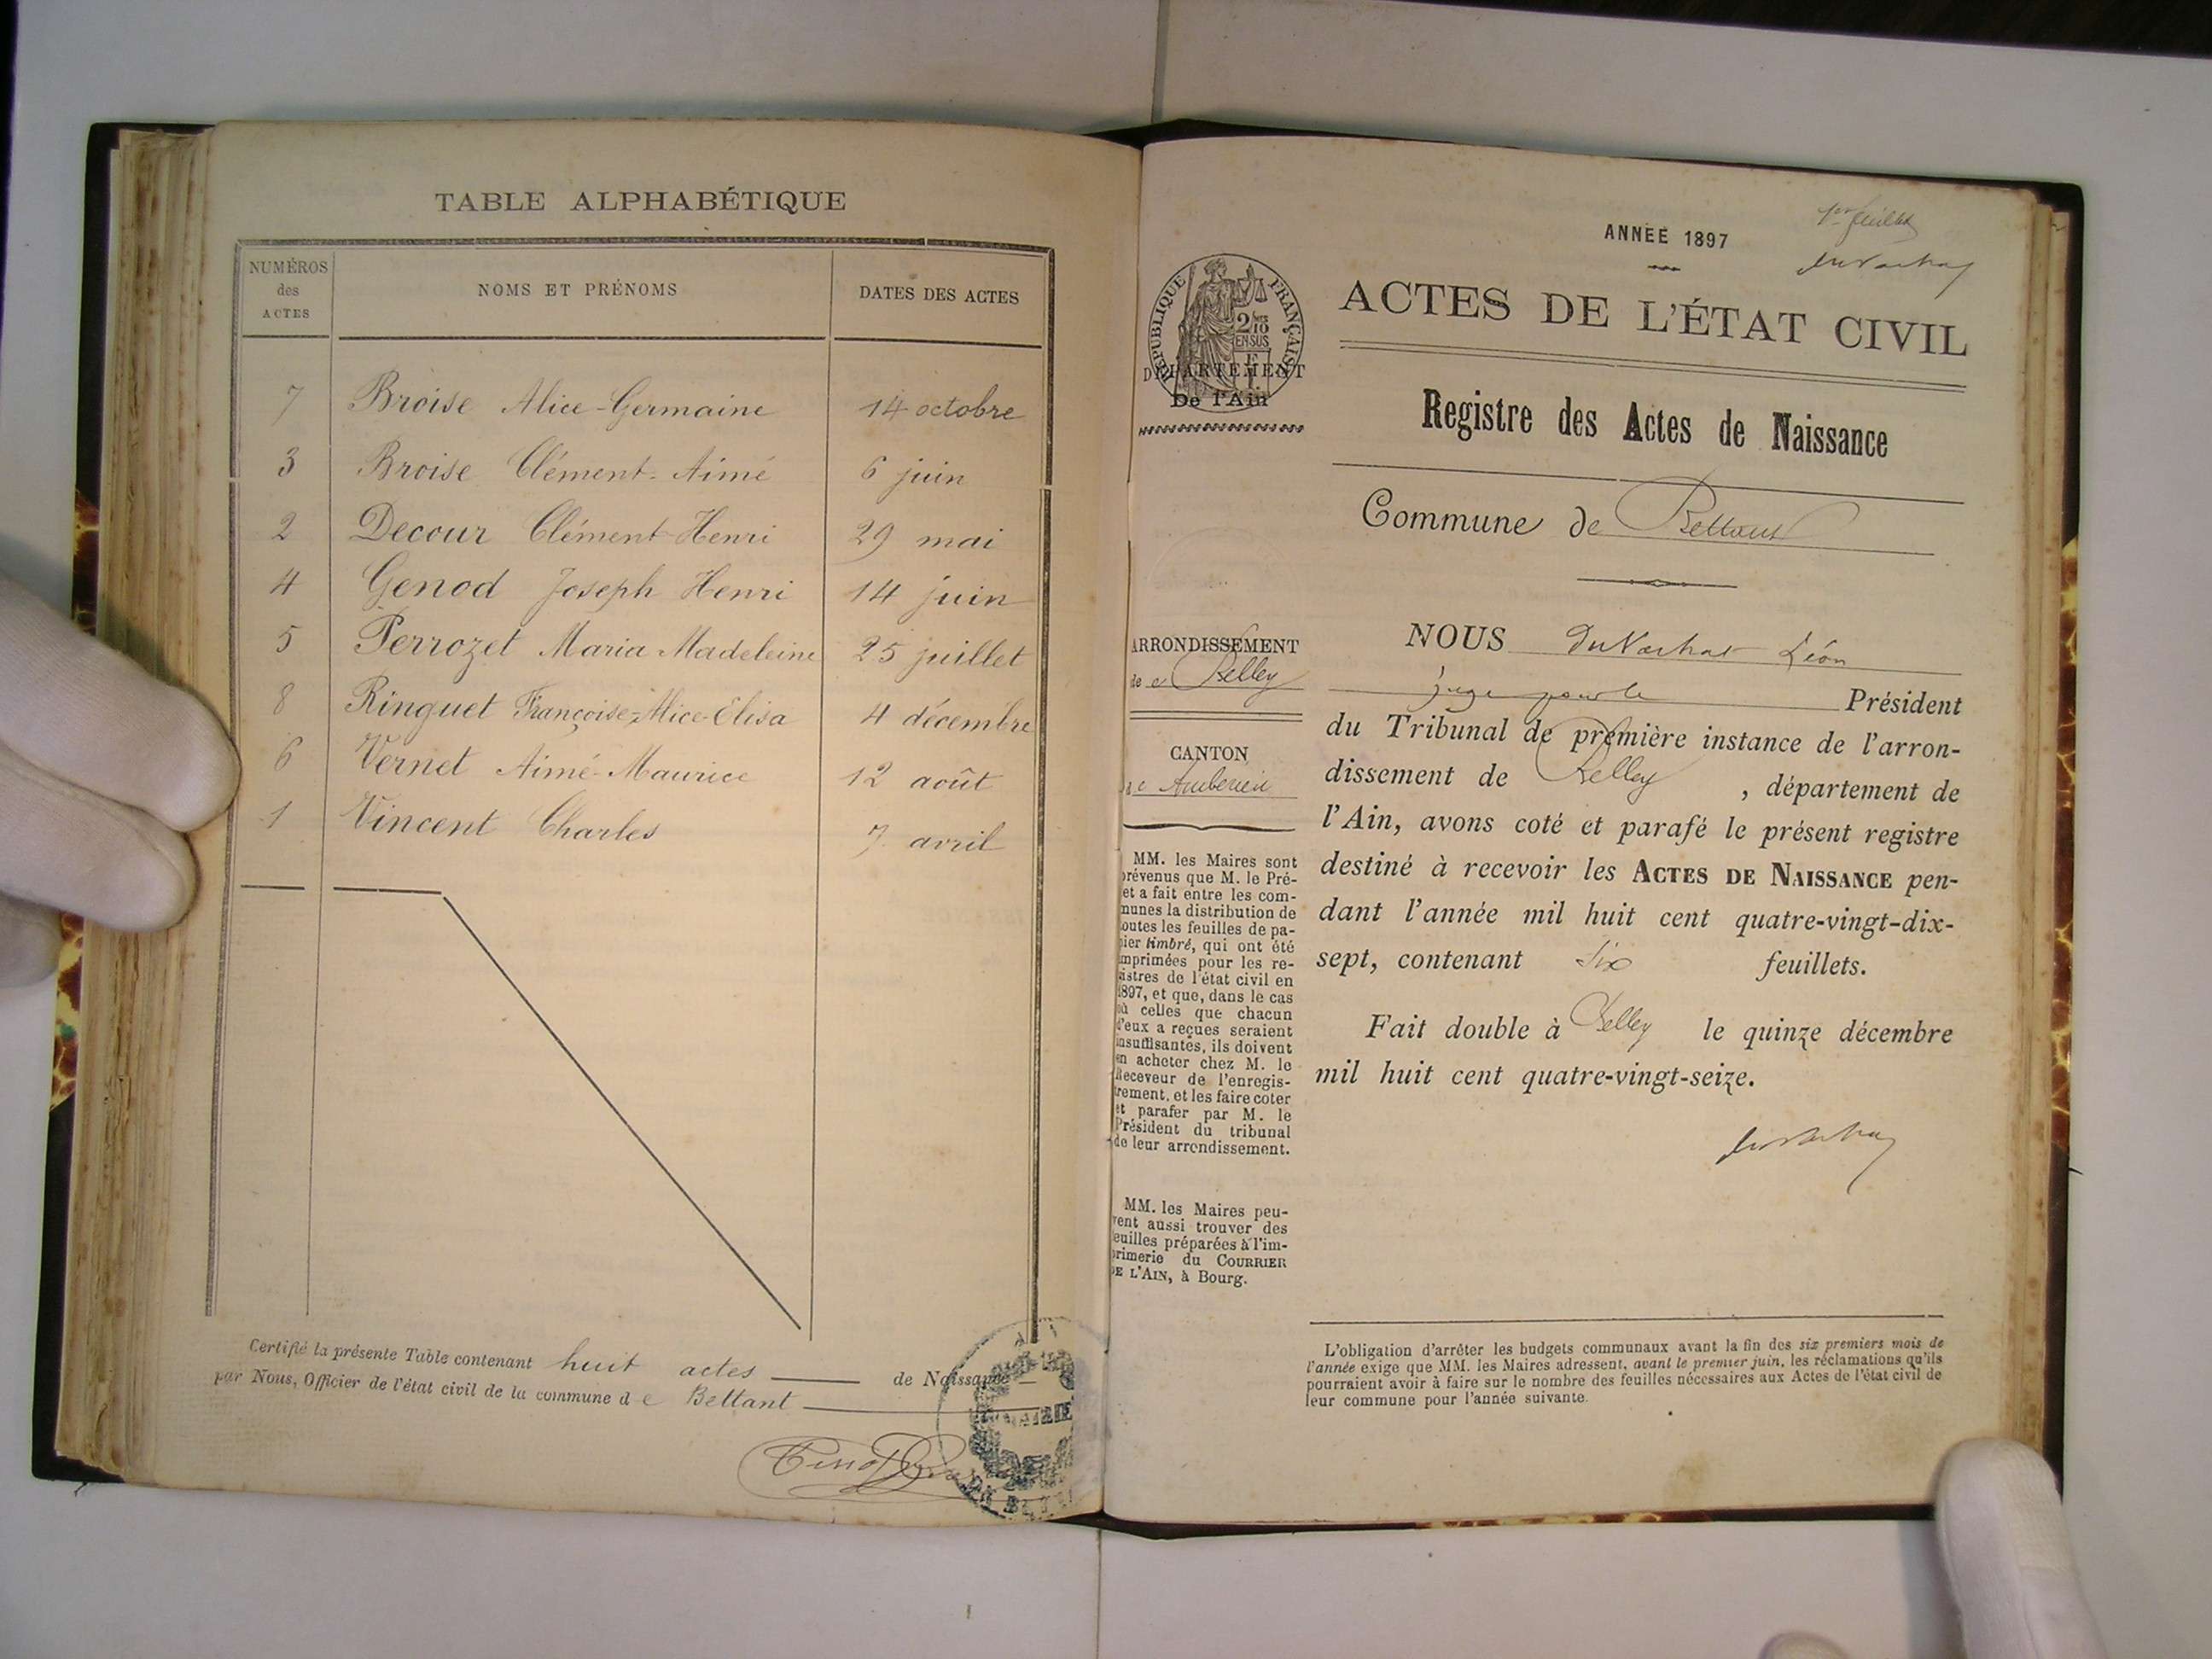 TABLE ALPHABÉTIQUE
NUMÉROS des ACTES
NOMS ET PRÉNOMS
DATES DES ACTES
7 Broise Alice-Germaine 14 octobre
3 Broise Clément-Aimé 6 juin
2 Decour Clément Henri 29 mai
4 Genod Joseph Henri 14 juin
5 Perrozet Maria Madeleine 25 juillet
8 Ringuet Françoise-Alice-Elisa 4 décembre
6 Vernet Aimé-Maurice 12 août
1 Vincent Charles 7 avril
Certifié la présente Table contenant huit actes de Naissance
par Nous, Officier de l'état civil de la commune de Bettant
1er feuillet
ANNÉE 1897
RÉPUBLIQUE FRANÇAISE
2/10 EN SUS
DÉPARTEMENT
De l'Ain
ACTES DE L'ÉTAT CIVIL
Registre des Actes de Naissance
Commune de Bettant
ARRONDISSEMENT
de Belley
CANTON
de Ambérieu
MM. les Maires sont
prévenus que M. le Pré-
et a fait entre les com-
munes la distribution de
toutes les feuilles de pa-
pier timbré, qui ont été
imprimées pour les re-
gistres de l'état civil en
1897, et que, dans le cas
où celles que chacun
d'eux a reçues seraient
insuffisantes, ils doivent
en acheter chez M. le
Receveur de l'enregis-
trement, et les faire coter
et parafer par M. le
Président du tribunal
de leur arrondissement.
MM. les Maires peu-
vent aussi trouver des
feuilles préparées à l'im-
primerie du COURRIER
DE L'AIN, à Bourg.
NOUS DuVachat Léon
juge pour le Président
du Tribunal de première instance de l'arron-
dissement de Belley, département de
l'Ain, avons coté et parafé le présent registre
destiné à recevoir les ACTES DE NAISSANCE pen-
dant l'année mil huit cent quatre-vingt-dix-
sept, contenant six feuillets.
Fait double à Belley le quinze décembre
mil huit cent quatre-vingt-seize.
L'obligation d'arrêter les budgets communaux avant la fin des six premiers mois de
l'année exige que MM. les Maires adressent, avant le premier juin, les réclamations qu'ils
pourraient avoir à faire sur le nombre des feuilles nécessaires aux Actes de l'état civil de
leur commune pour l'année suivante.